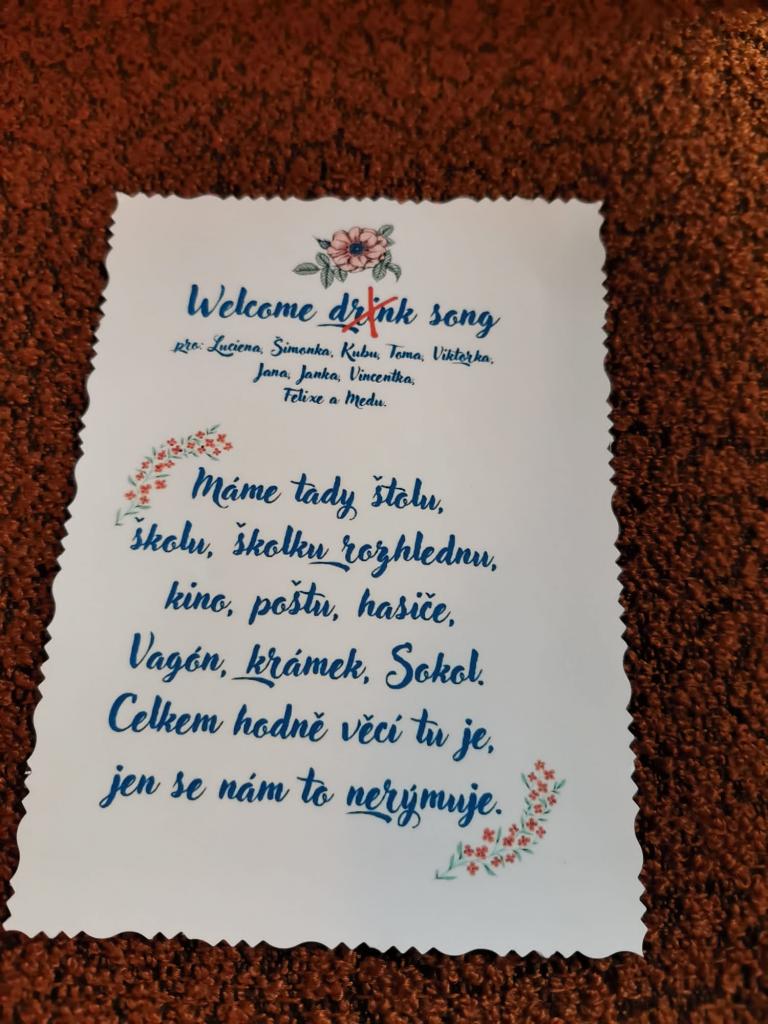 Welcome drink song
pro: Luciena, Šimonka, Kubu, Toma, Viktorka,
Jana, Janka, Vincentka,
Felixe a Medu.
Máme tady štolu,
školu, školku rozhlednu,
kino, poštu, hasiče,
Vagón, krámek, Sokol.
Celkem hodně věcí tu je,
jen se nám to nerýmuje.